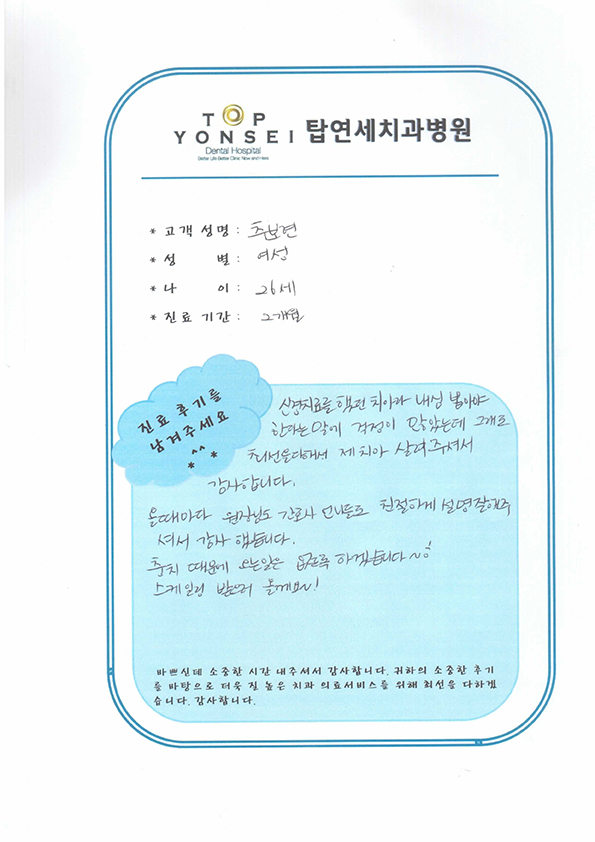 TOP
YONSEI 탑연세치과병원
Dental Hospital
Better Life Better Clinic Now and Here
* 고객 성명 : 추보연
* 성 별 : 여성
* 나 이 : 26세
* 진료 기간 : 2개월
진료 후기를
남겨주세요
^^
* *
신경치료를 했던 치아라 내심 뽑아야
한다는 말에 걱정이 많았는데 그래도
최선을다해서 제 치아 살려주셔서
감사합니다.
올때마다 원장님도 간호사 언니들도 친절하게 설명잘해주
셔서 감사 했습니다.
충치 때문에 오는일은 없도록 하겠습니다~!
스케일링 받으러 올게요~!
바쁘신데 소중한 시간 내주셔서 감사합니다. 귀하의 소중한 후기
를 바탕으로 더욱 질 높은 치과 의료서비스를 위해 최선을 다하겠
습니다. 감사합니다.